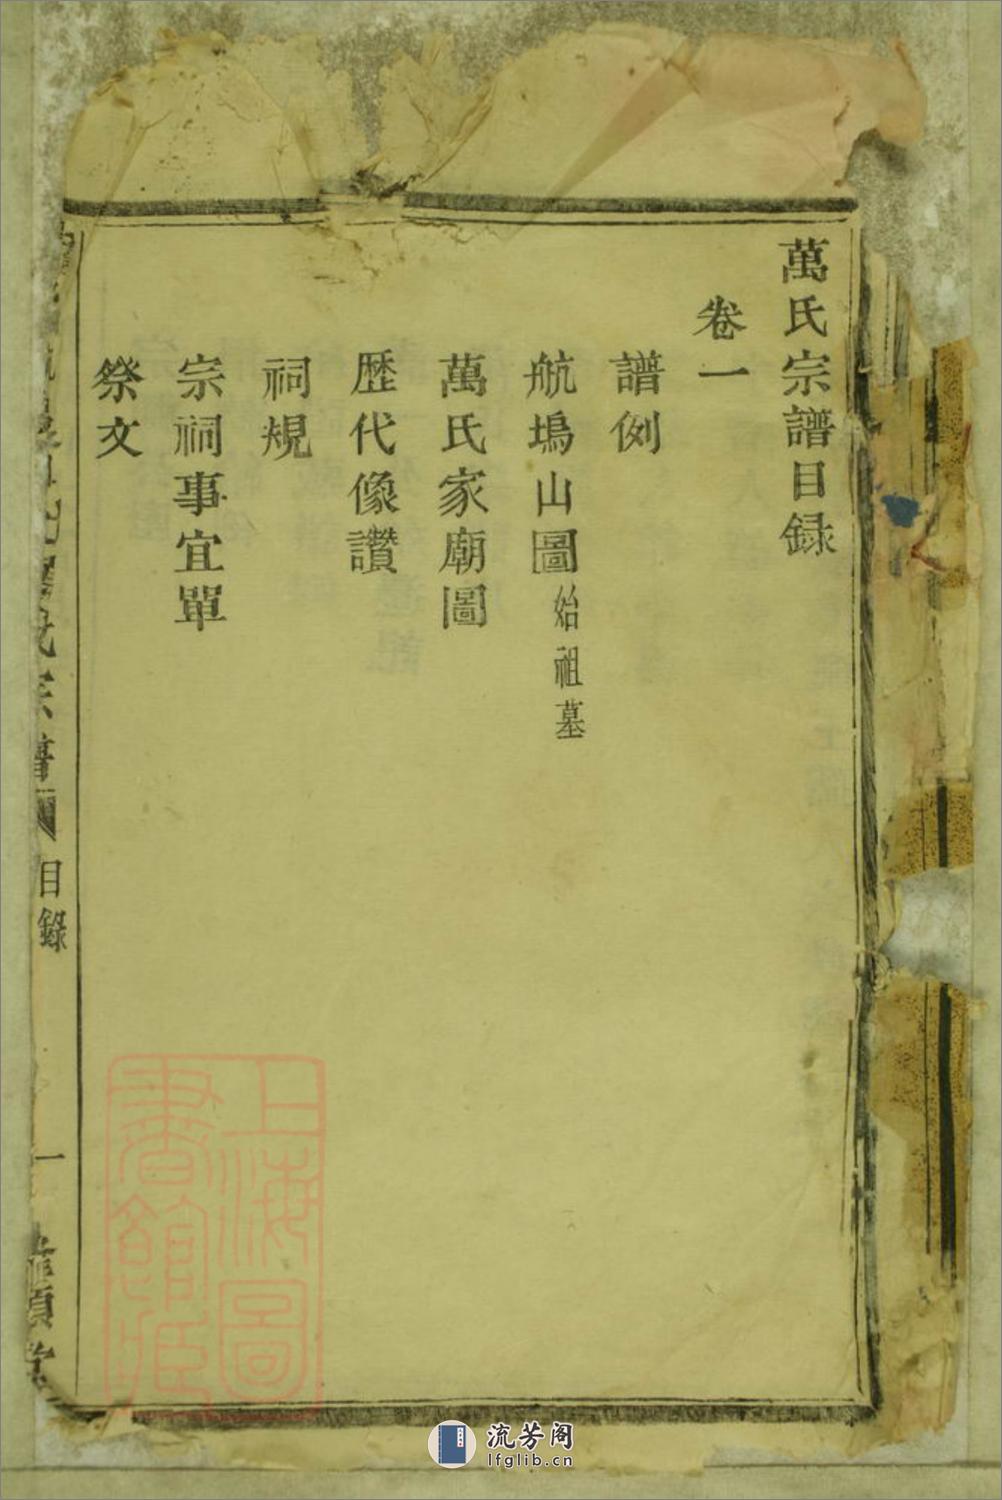 萬氏宗譜目録
卷一
譜例
航塢山圖始祖墓
萬氏家廟圖
歴代像讚
祠規
宗祠事宜單
祭文
目錄
一
上海圖
書館藏
流芳阁
lfglib.cn